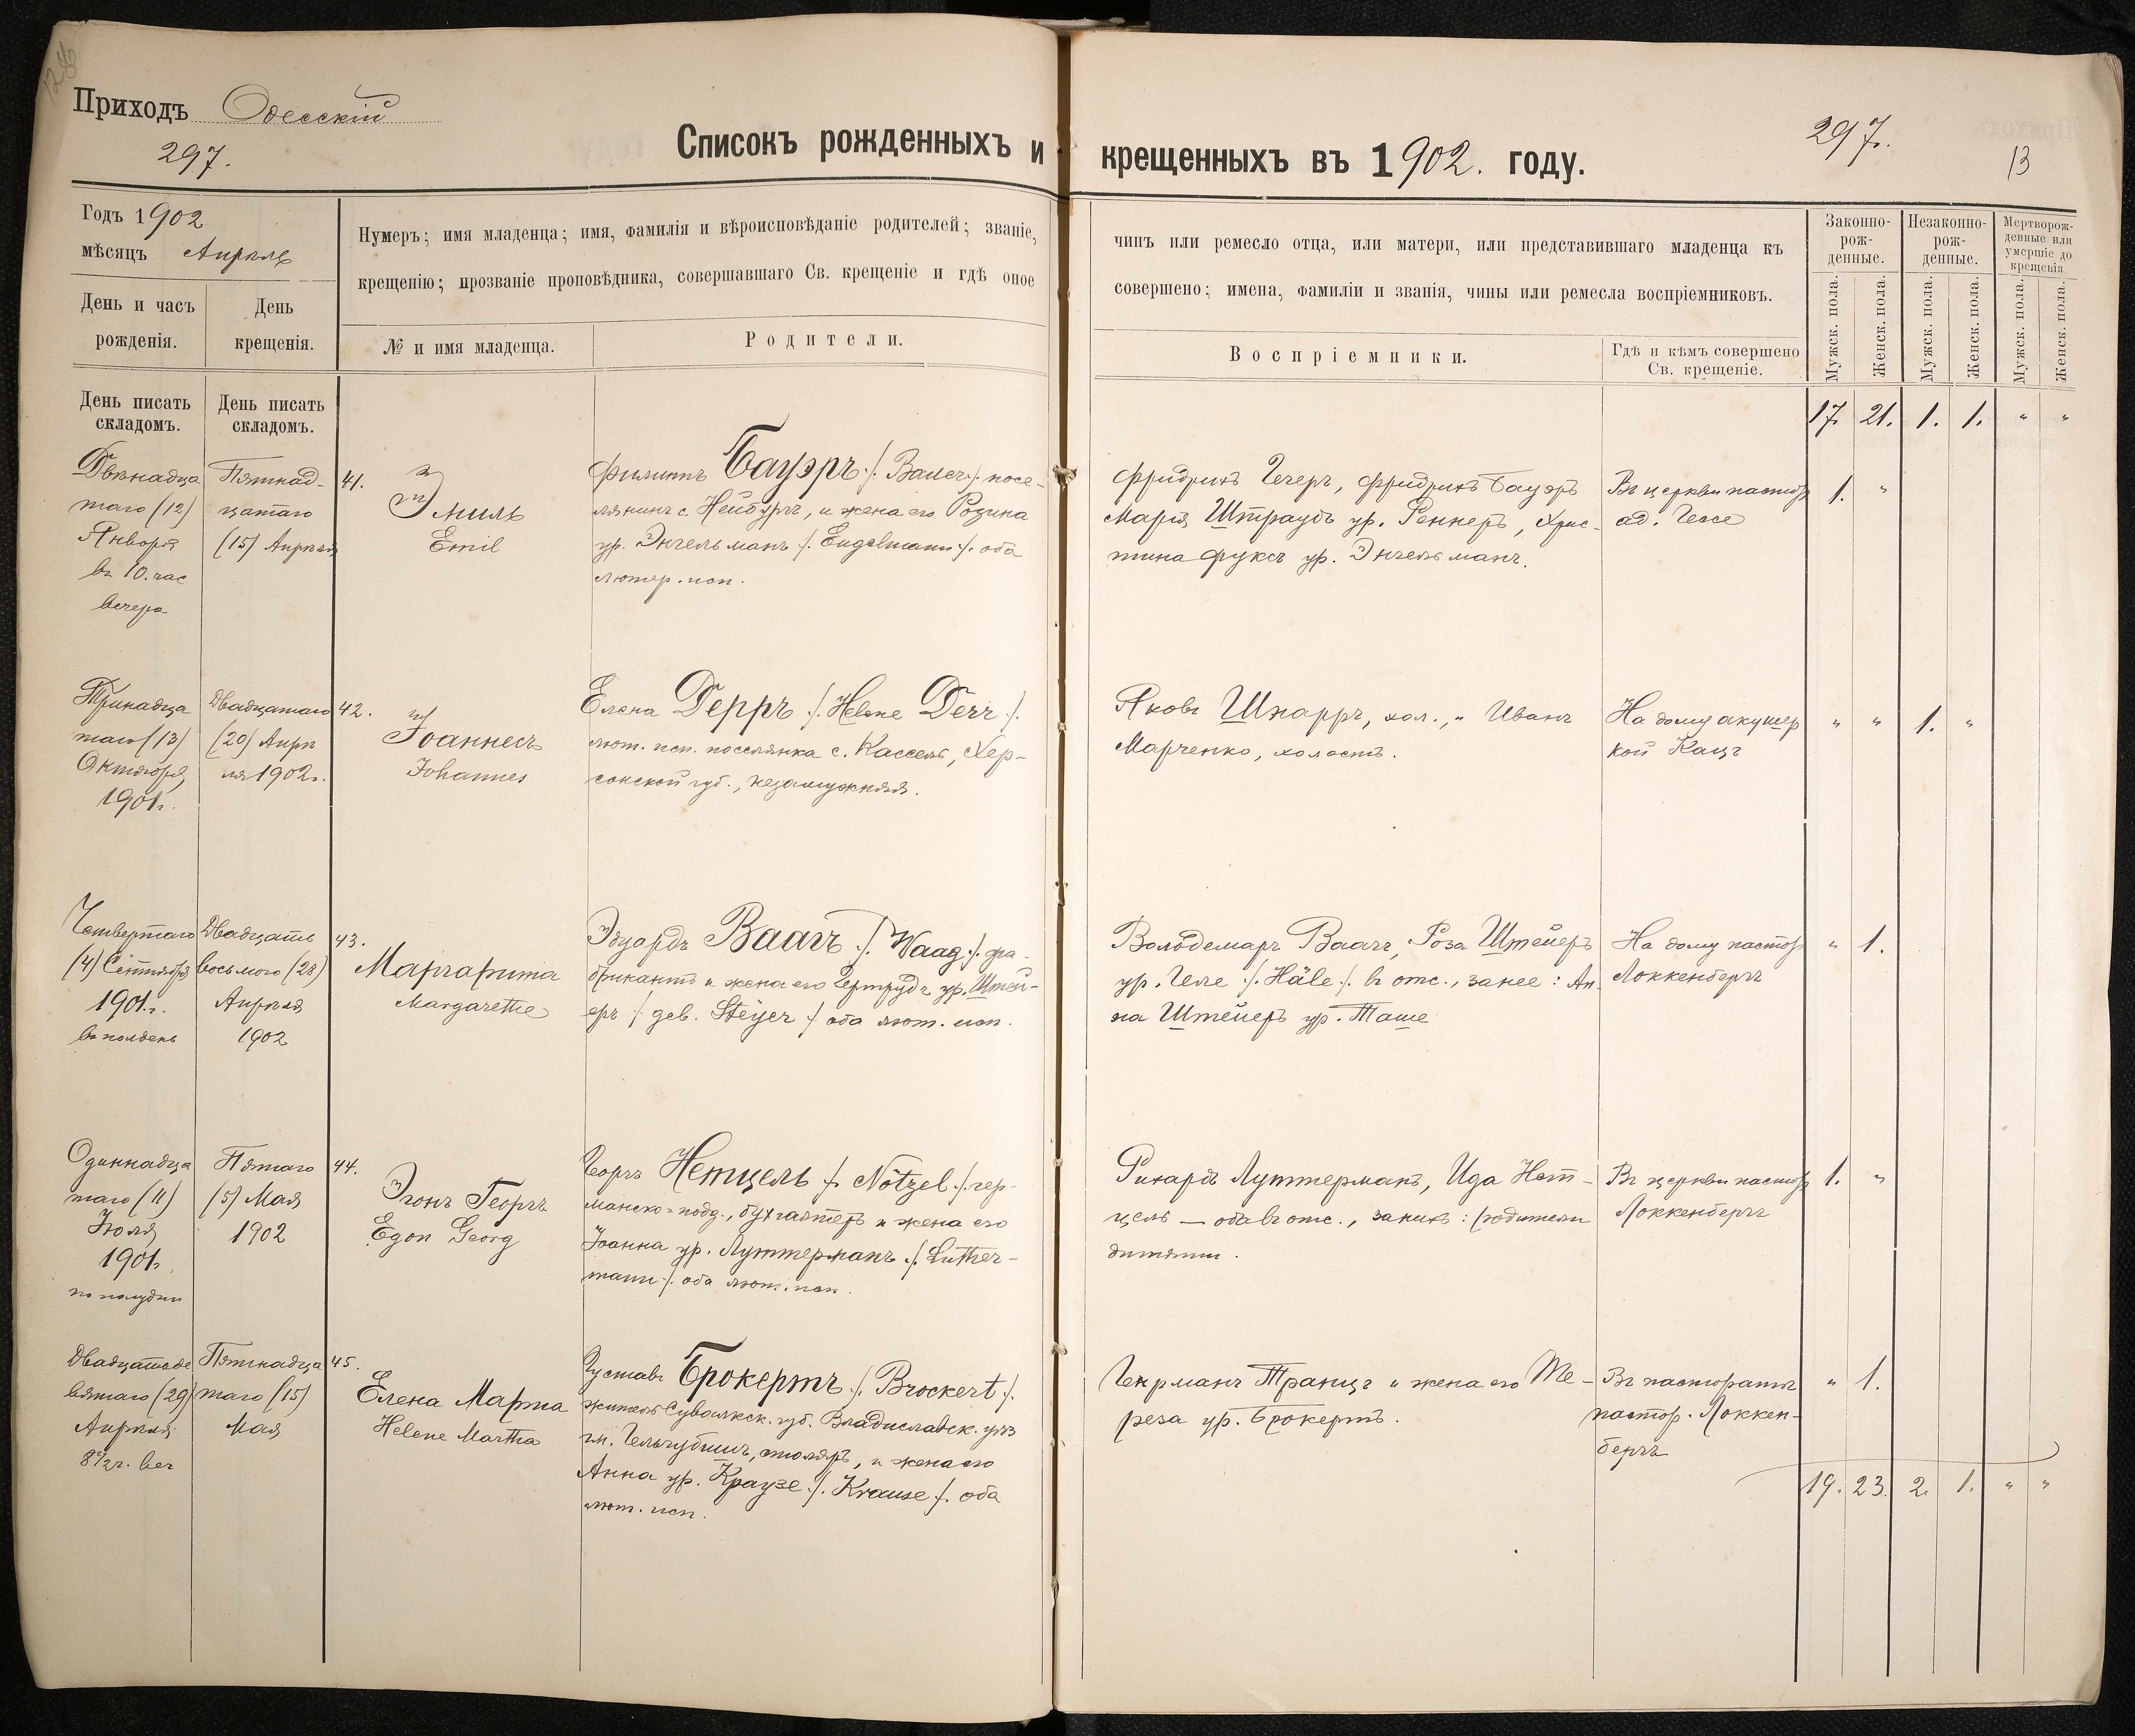 Приходъ Одесскій
297.
Списокъ рожденныхъ и крещенныхъ въ 1902. году.
297.
13
Годъ 1902
мѣсяцъ Апрѣль
День и часъ рожденія.
День крещенія.
Нумеръ; имя младенца; имя, фамилія и вѣроисповѣданіе родителей; званіе,
крещенію; прозваніе проповѣдника, совершавшаго Св. крещеніе и гдѣ оное
№ и имя младенца.
Родители.
чинъ или ремесло отца, или матери, или представившаго младенца къ
совершено; имена, фамиліи и званія, чины или ремесла воспріемниковъ.
Воспріемники.
Гдѣ и кѣмъ совершено
Св. крещеніе.
Законно-
рож-
денные.
Незаконно-
рож-
денные.
Мертворож-
денные или
умершіе до
крещенія
Мужск. пола.
Женск. пола.
Мужск. пола.
Женск. пола.
Мужск. пола.
Женск. пола.
День писать
складомъ.
День писать
складомъ.
17. 21. 1. 1. " "
Двѣнадца
таго (12)
Января
въ 10. час
вечера
Пятнад-
цатаго
(15) Апрѣля
41.
Эмиль
Emil
Филиппъ Бауэръ /. Bauer ./. посе-
лянинъ с. Нейбургъ, и жена его Розина
ур. Энгельманъ /. Engelmann ./. оба
лютер. исп.
Фридрихъ Гечеръ, Фридрихъ Бауэръ
Марія Штраубъ ур. Реннеръ, Хрис-
тина Фуксъ ур. Энгельманъ.
Въ церкви пастор
ад. Гессе
1. "
Тринадца
таго (13)
Октября
1901г.
Двадцатаго
(20) Апрѣ
ля 1902г.
42.
Іоаннесъ
Johannes
Елена Дерръ /. Helene Derr /.
лют. исп. поселянка с. Кассель, Хер-
сонской губ., незамужняя.
Яковъ Шнарръ, хол., " Иванъ
Марченко, холостъ.
На дому акушер
кой Кацъ
" " 1. "
Четвертаго
(4) Сентября
1901.г.
въ полдень
Двадцать
восьмого (28)
Апрѣля
1902
43.
Маргарита
Margarethe
Эдуардъ Ваагъ /. Waag ./. фа-
брикантъ и жена его Гертруда ур. Штей-
еръ /. дев. Steyer / оба лют. исп.
Вольдемаръ Ваагъ, Роза Штейеръ
ур. Геле /. Häle /. въ отс., за нее: Ан-
на Штейеръ ур. Таше
На дому пастор
Локкенбергъ
" 1.
Одиннадца
таго (11)
Іюля
1901г.
по полудни
Пятаго
(5) Мая
1902
44.
Эгонъ Георгъ
Egon Georg
Георгъ Нетцель /. Nötzel /. гер-
манско-подд., бухгалтеръ и жена его
Іоанна ур. Луттерманъ /. Luther-
mann /. оба лют. исп.
Рихардъ Луттерманъ, Ида Нет-
цель — оба въ отс., за нихъ: (родители
дитяти.
Въ церкви пастор
Локкенбергъ
1. "
Двадцатьде
вятаго (29)
Апрѣля
8 1/2 ч. веч
Пятнадца
таго (15)
Мая
45.
Елена Марта
Helene Martha
Густавъ Брокертъ /. Brockert /.
житель Сувалкск. губ. Владиславск. уѣз
гм. Гельгубишк, столяръ, и жена его
Анна ур. Краузе /. Krause /. оба
лют. исп.
Германъ Транцъ и жена его Те-
реза ур. Брокертъ.
Въ пасторатѣ
пастор. Локкен-
бергъ
" 1.
19. 23. 2. 1. " "